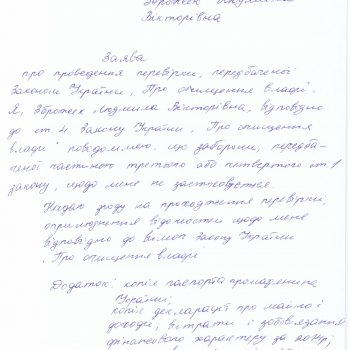 Вікторівна
Заява
про проведення перевірки, передбаченої
Законом України „Про очищення влади".
Я, Зброжек Людмила Вікторівна, відповідно
до ст. 4 Закону України „Про очищення
влади" повідомляю, що заборони, передба-
ченої частиною третьою або четвертою ст. 1
Закону, щодо мене не застосовується.
Надаю згоду на проходження перевірки,
оприлюднення відомостей щодо мене
відповідно до вимог Закону України
„Про очищення влади
Додаток: копія паспорта громадянина
України;
копія декларації про майно і
доходи, витрати і зобов'язання
фінансового характеру за